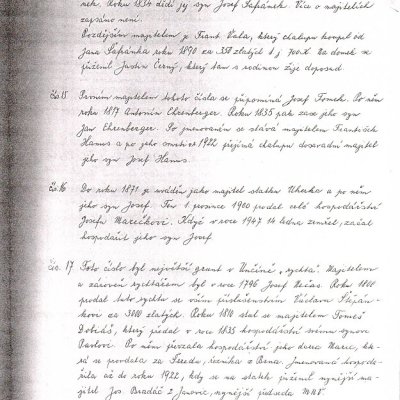 nek. Roku 1834 dědí jej syn Josef Šafránek. Více o majitelích
zapsáno není.
Pozdějším majitelem je Frant. Vala, který chalupu koupil od
Jana Šafránka roku 1890 za 350 zlatých t.j. 700 K. Na domek se
přiženil Justin Černý, který tam s rodinou žije doposud.
čís. 15 Prvním majitelem tohoto čísla se připomíná Josef Tomek. Po něm
roku 1817 Antonín Ehrenberger. Roku 1835 pak zase jeho syn
Jan Ehrenberger. Po jmenovaném se stává majitelem František
Hanus a po jeho smrti r. 1922 přejímá chalupu dosavadní majitel
jeho syn Josef Hanus.
čís. 16 Do roku 1871 je uváděn jako majitel statku Uherka a po něm
jeho syn Josef. Ten 1. prosince 1900 prodal celé hospodářství
Josefu Marečkovi. Když v roce 1947 14. ledna zemřel, začal
hospodařit jeho syn Josef.
čís. 17 Toto číslo byl největší grunt v Unčíně "rychta". Majitelem
a zároveň rychtářem byl v roce 1796 Josef Nečas. Roku 1800
prodal tuto rychtu se vším příslušenstvím Václavu Štěpán-
kovi za 3200 zlatých. Roku 1810 stal se majitelem Tomáš
Dobiáš, který předal v roce 1835 hospodářství svému synovi
Pavlovi. Po něm převzala hospodářství jeho dcera Marie, kte-
rá se provdala za řezníka z Brna. Jmenovaná hospoda-
řila až do roku 1922, kdy se na statek přiženil nynější ma-
jitel Jos. Bradáč z Janovic, nynější předseda MNV.